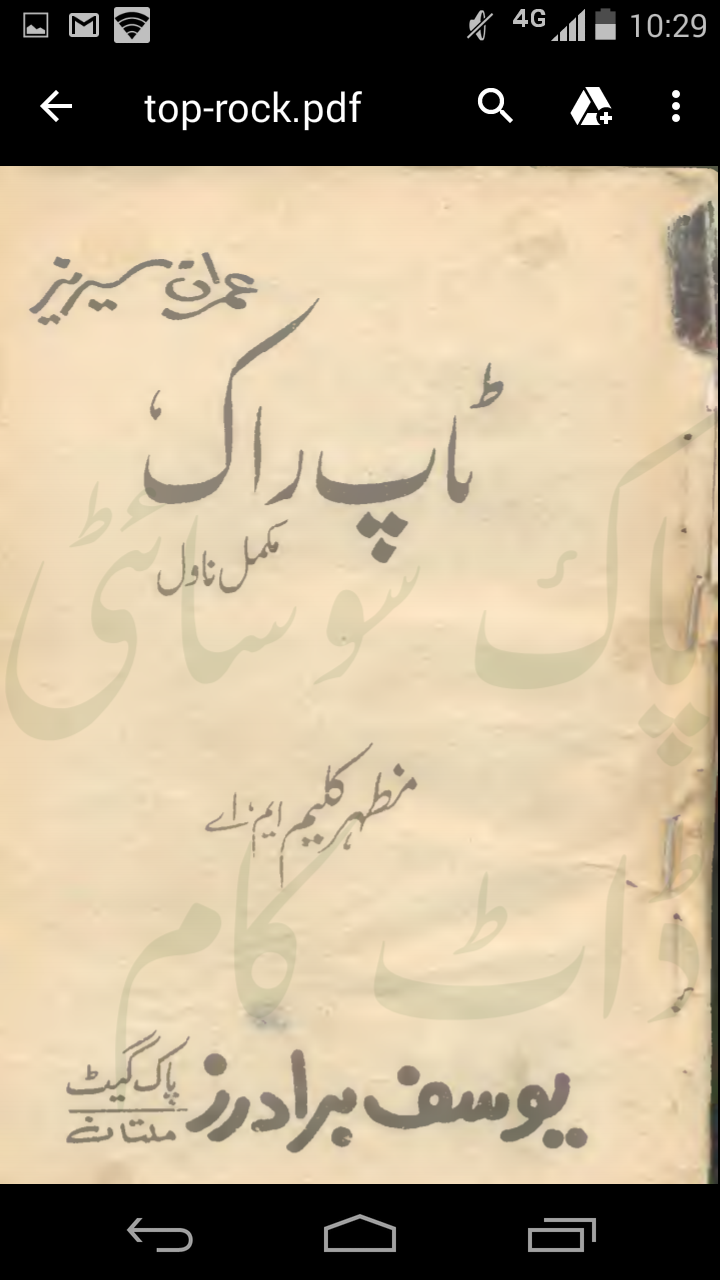 4G 10:29
top-rock.pdf
عمران سیریز
ٹاپ راک
مکمل ناول
پاک سوسائٹی
مظہر کلیم ایم، اے
ڈاٹ کام
یوسف برادرز پاک گیٹ
ملتان